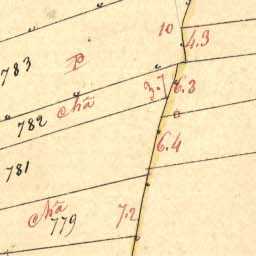 10
4.3
783
P
3.7
6.3
Nă
782
0
6.4
781
Nă
779
7.2